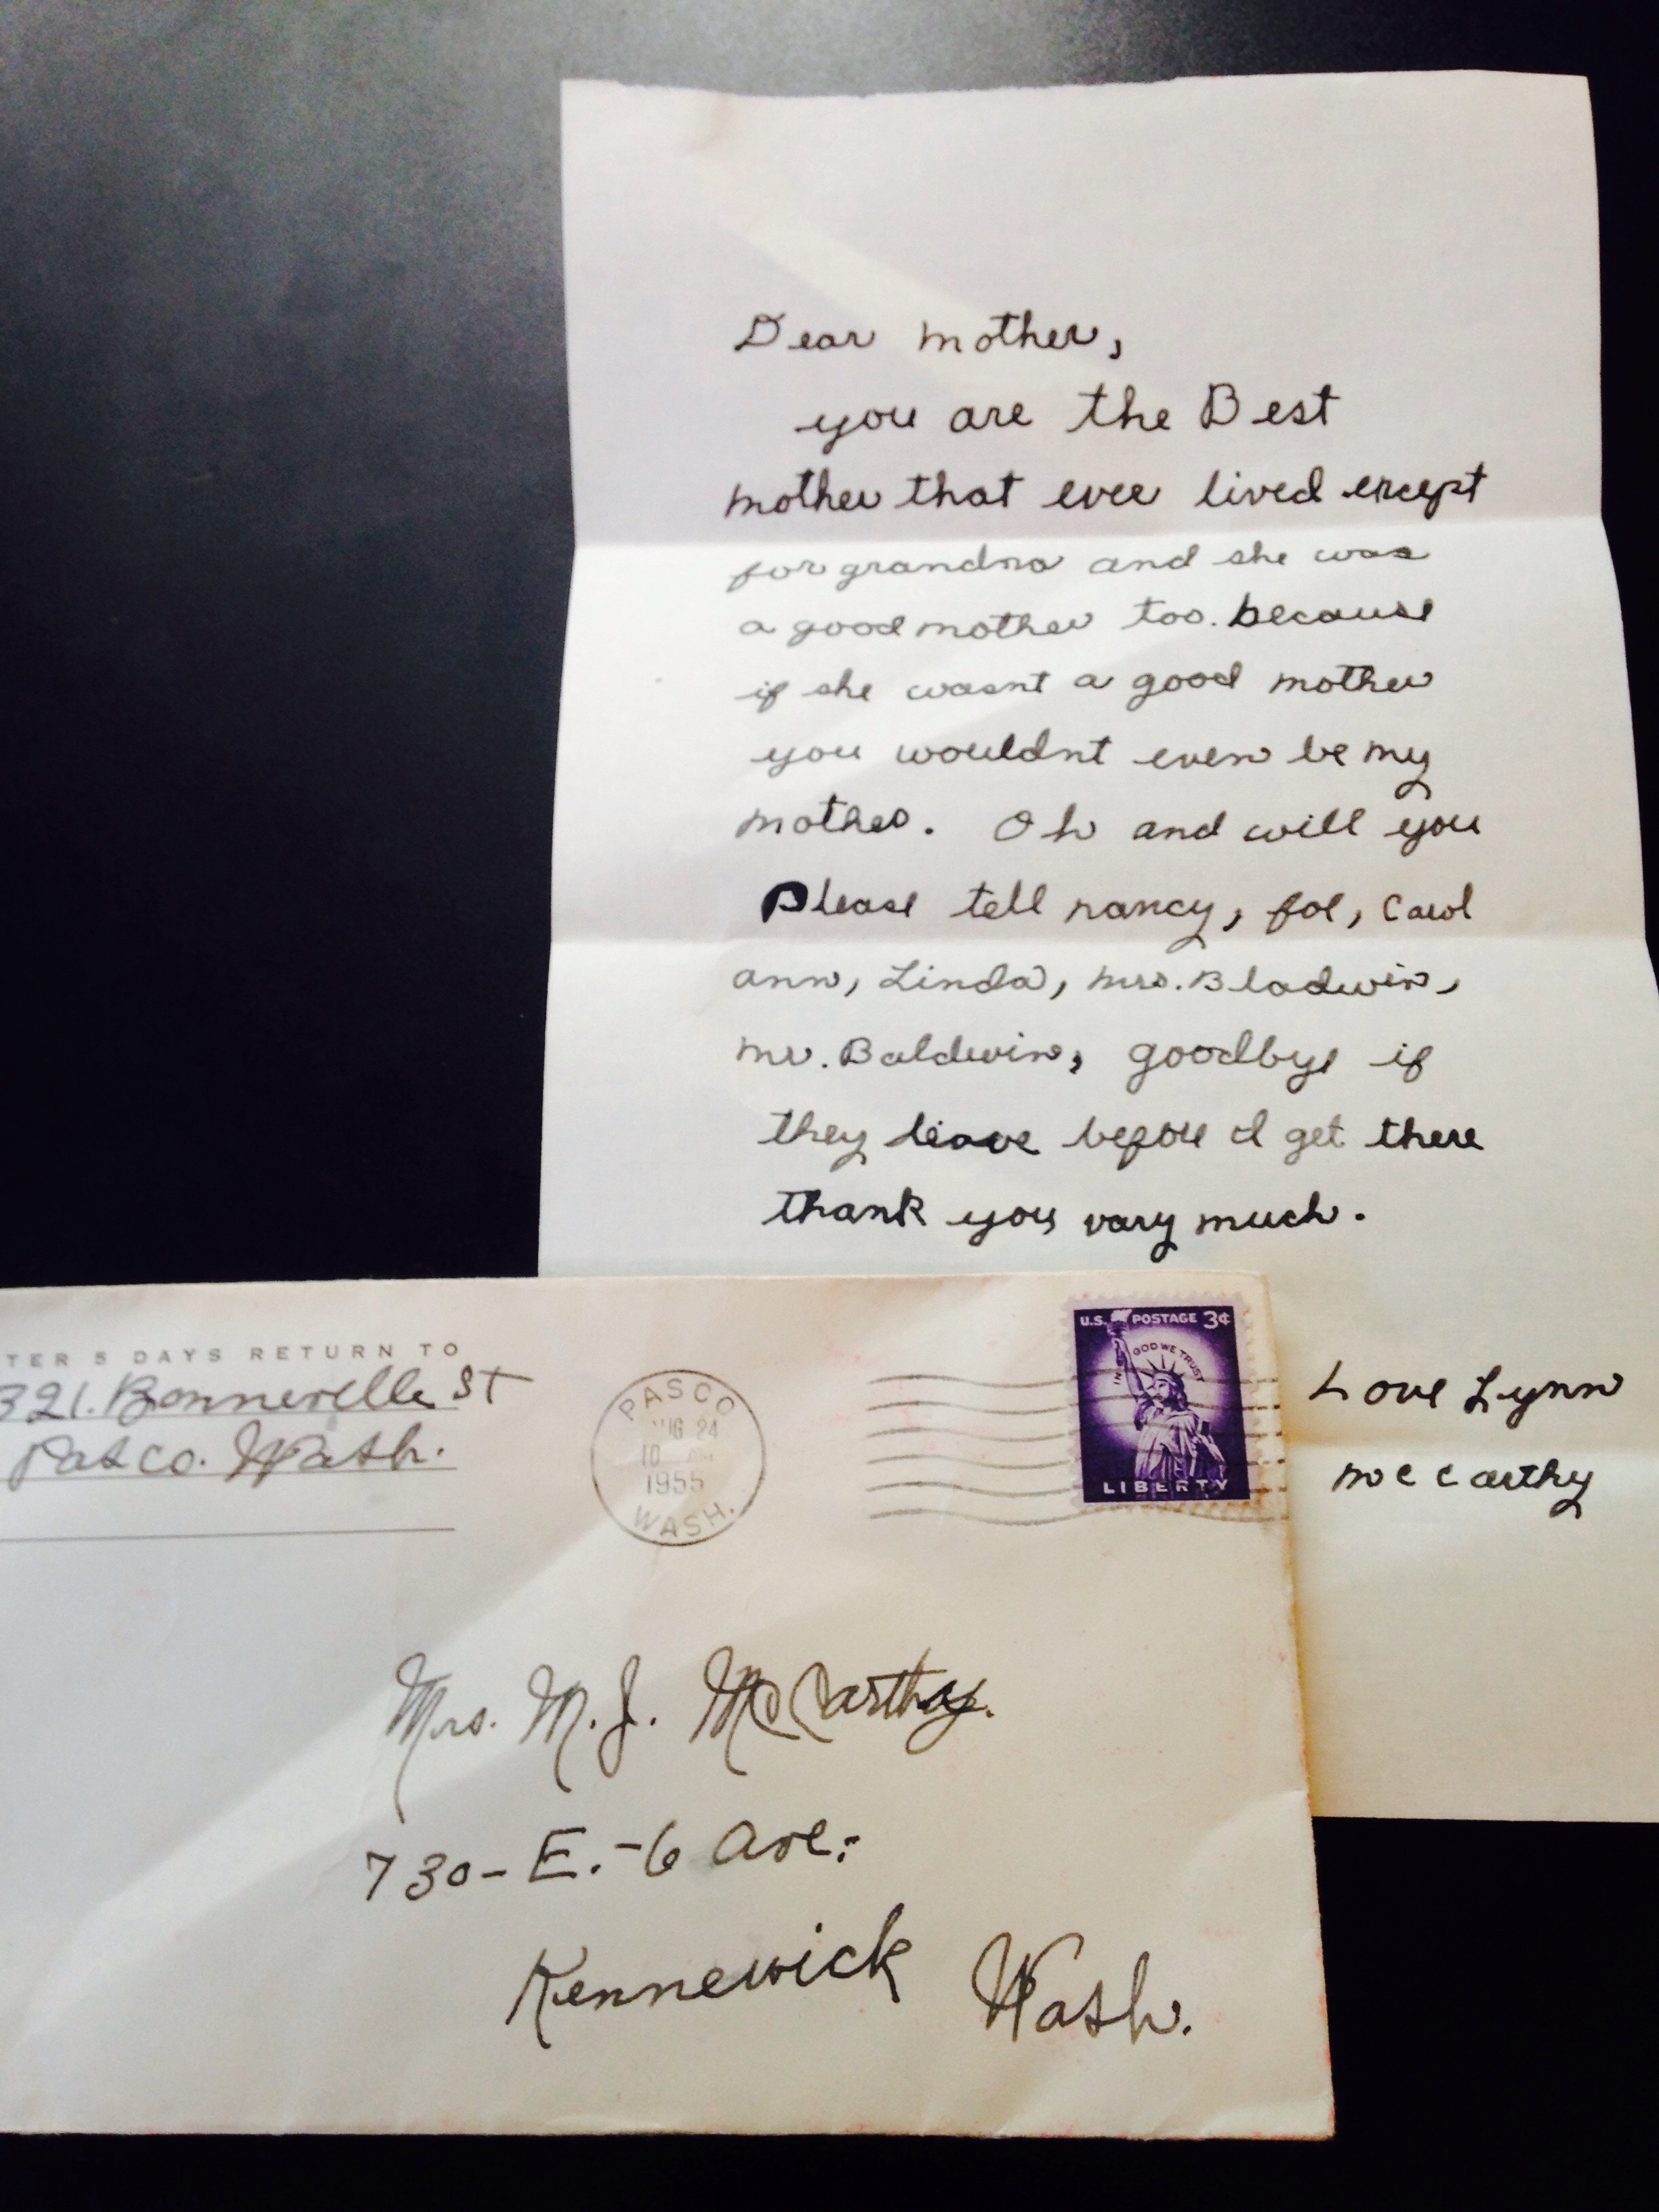 Dear mother,
you are the Best
mother that ever lived except
for grandma and she was
a good mother too. because
if she wasnt a good mother
you wouldnt even be my
mother. Oh and will you
Please tell nancy, joe, Carol
ann, Linda, mrs. Bladwin,
mr. Baldwin, goodbye if
they leave before I get there
thank you vary much.
Love Lynn
mcCarthy
TER 5 DAYS RETURN TO
321. Bonneville St
Pasco. Wash.
PASCO
AUG 24
10
1955
WASH.
U.S. POSTAGE 3¢
IN GOD WE TRUST
LIBERTY
Mrs. M. J. McCarthy.
730-E.-6 Ave.
Kennewick Wash.